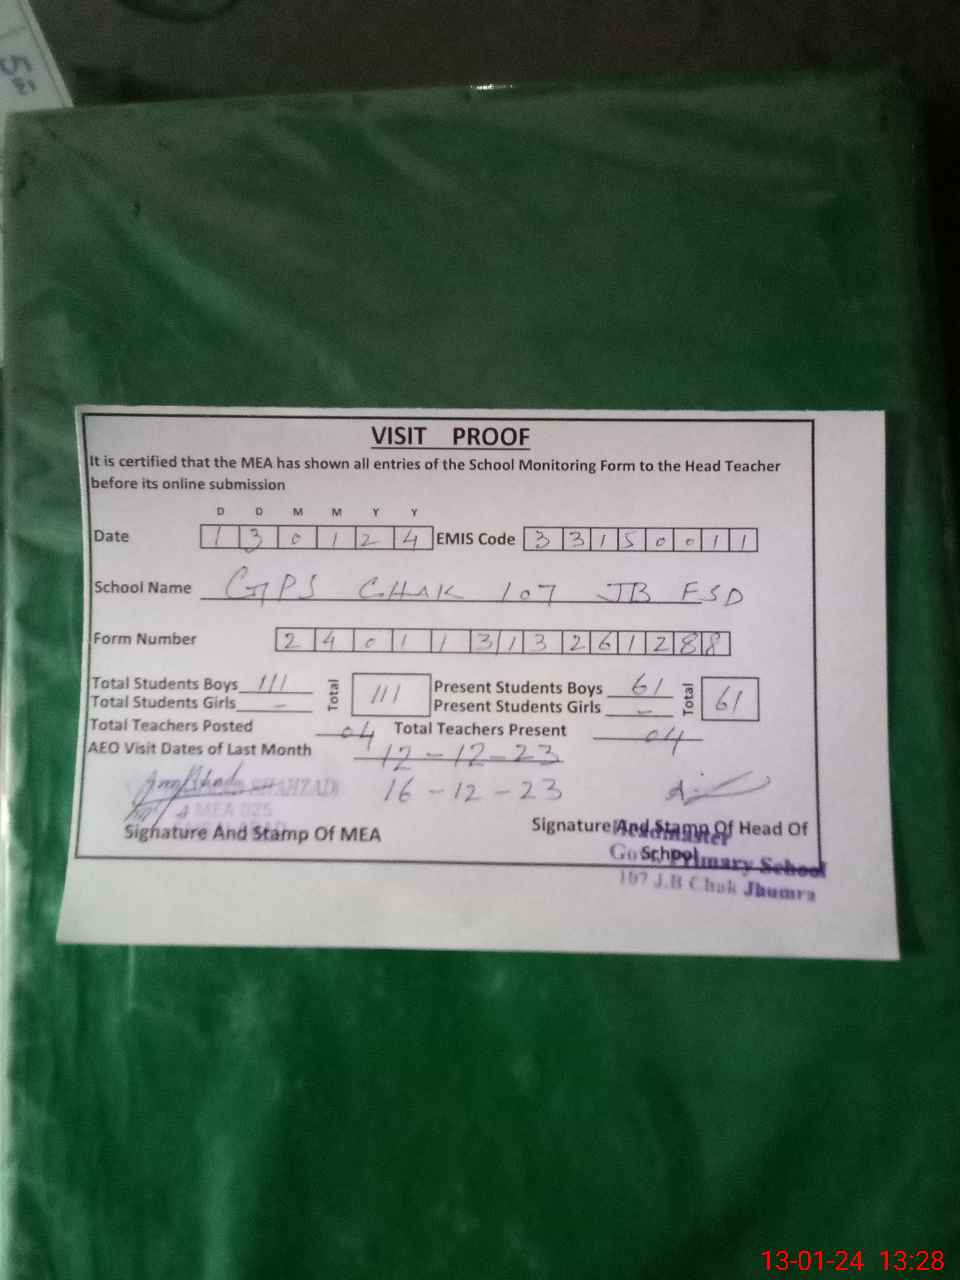 VISIT PROOF
It is certified that the MEA has shown all entries of the School Monitoring Form to the Head Teacher
before its online submission
D D M M Y Y
Date 1 3 0 1 2 4 EMIS Code 3 3 1 5 0 0 1 1
School Name GPS CHAK 107 JB FSD
Form Number 2 4 0 1 1 3 1 3 2 6 1 2 8 8
Total Students Boys 111 Total 111 Present Students Boys 61 Total 61
Total Students Girls - Present Students Girls -
Total Teachers Posted 04 Total Teachers Present 04
AEO Visit Dates of Last Month 12-12-23
16-12-23
SHAHZAD
MEA 025
Signature And Stamp Of MEA
Signature And Stamp Of Head Of
School
Headmaster
Govt. Primary School
107 J.B Chak Jhumra
13-01-24 13:28